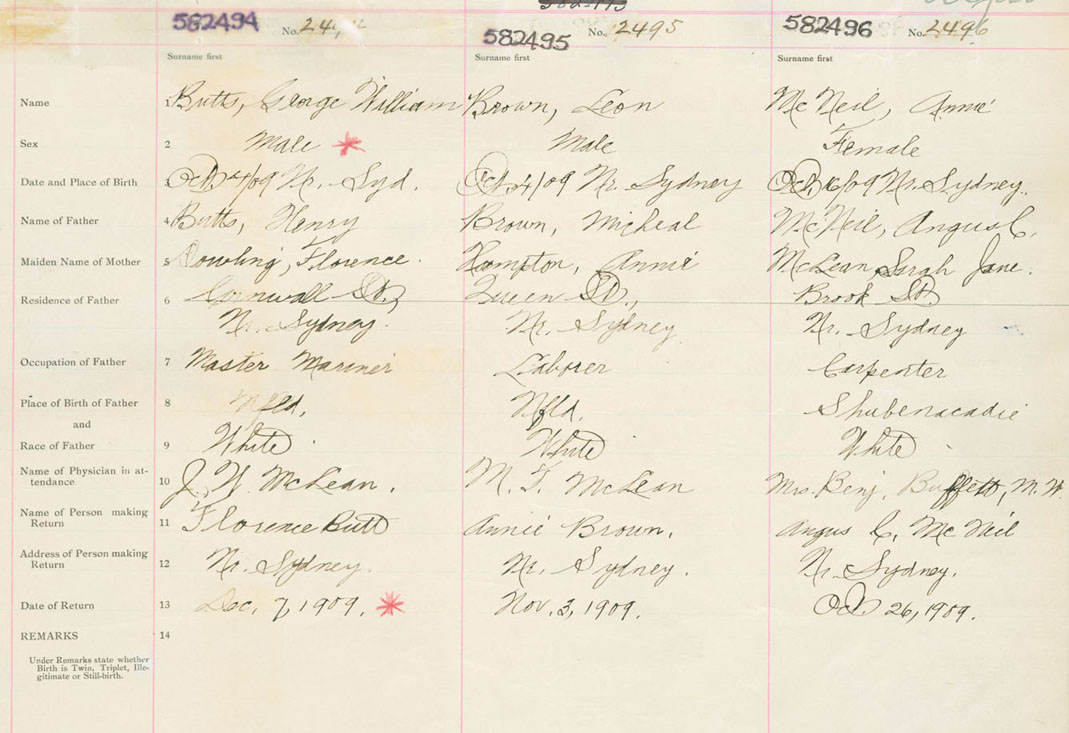 582494 No. 582495 No. 2495 582496 No. 2496
Surname first Surname first Surname first
Name 1 Butts, George William Brown, Leon McNeil, Annie
Sex 2 Male Male Female
Date and Place of Birth 3 Oct 4/09 Nr. Syd. Oct 4/09 Nr. Sydney Oct 6/09 Nr. Sydney.
Name of Father 4 Butts, Henry Brown, Micheal McNeil, Angus C.
Maiden Name of Mother 5 Cowling, Florence. Hampton, Annie McLean, Sarah Jane.
Residence of Father 6 Cornwall St, Queen St., Brook St
Nr. Sydney. Nr. Sydney Nr. Sydney
Occupation of Father 7 Master Mariner Laborer Carpenter
Place of Birth of Father 8 Nfld. Nfld. Shubenacadie
and
Race of Father 9 White White White
Name of Physician in at-
tendance 10 J. W. McLean. M. T. McLean Mrs. Benj. Buffett, M. W.
Name of Person making
Return 11 Florence Butt Annie Brown. Angus C. McNeil
Address of Person making
Return 12 Nr. Sydney. Nr. Sydney. Nr. Sydney.
Date of Return 13 Dec. 7, 1909. Nov. 3, 1909. Oct 26, 1909.
REMARKS 14
Under Remarks state whether
Birth is Twin, Triplet, Ille-
gitimate or Still-birth.